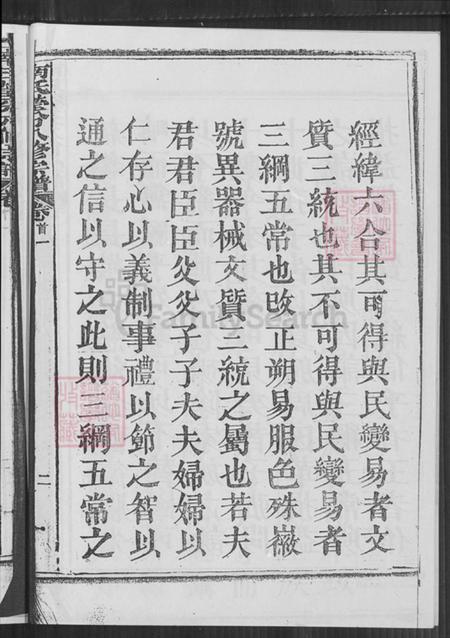 經緯六合其可得與民變易者文
質三統也其不可得與民變易者
三綱五常也改正朔易服色殊徽
號異器械文質三統之屬也若夫
君君臣臣父父子子夫夫婦婦以
仁存心以義制事禮以節之智以
通之信以守之此則三綱五常之
八修宗譜 卷首一
二
FamilySearch